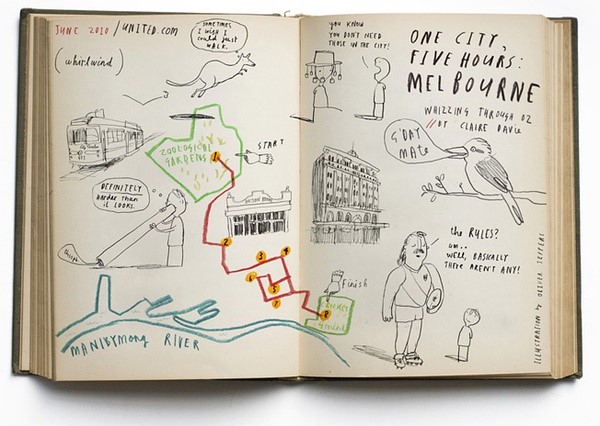 JUNE 2010 / UNITED.COM
(whirlwind)
SOMETIMES
I wish I
could just
WALK.
ZOOLOGICAL
GARDENS
1
START
DEFINITELY
harder than
it LOOKS.
2
3
4
6
5
7
8
Finish
RIVER
YOU KNOW
YOU DON'T NEED
THOSE IN THE CITY!
ONE CITY,
FIVE HOURS:
MELBOURNE
WHIZZING THROUGH OZ
// BY CLAIRE DAVIE
G'DAY
MATE
the RULES?
um..
WELL, BASICALLY
THERE AREN'T ANY!
ILLUSTRATION by OLIVER JEFFERS